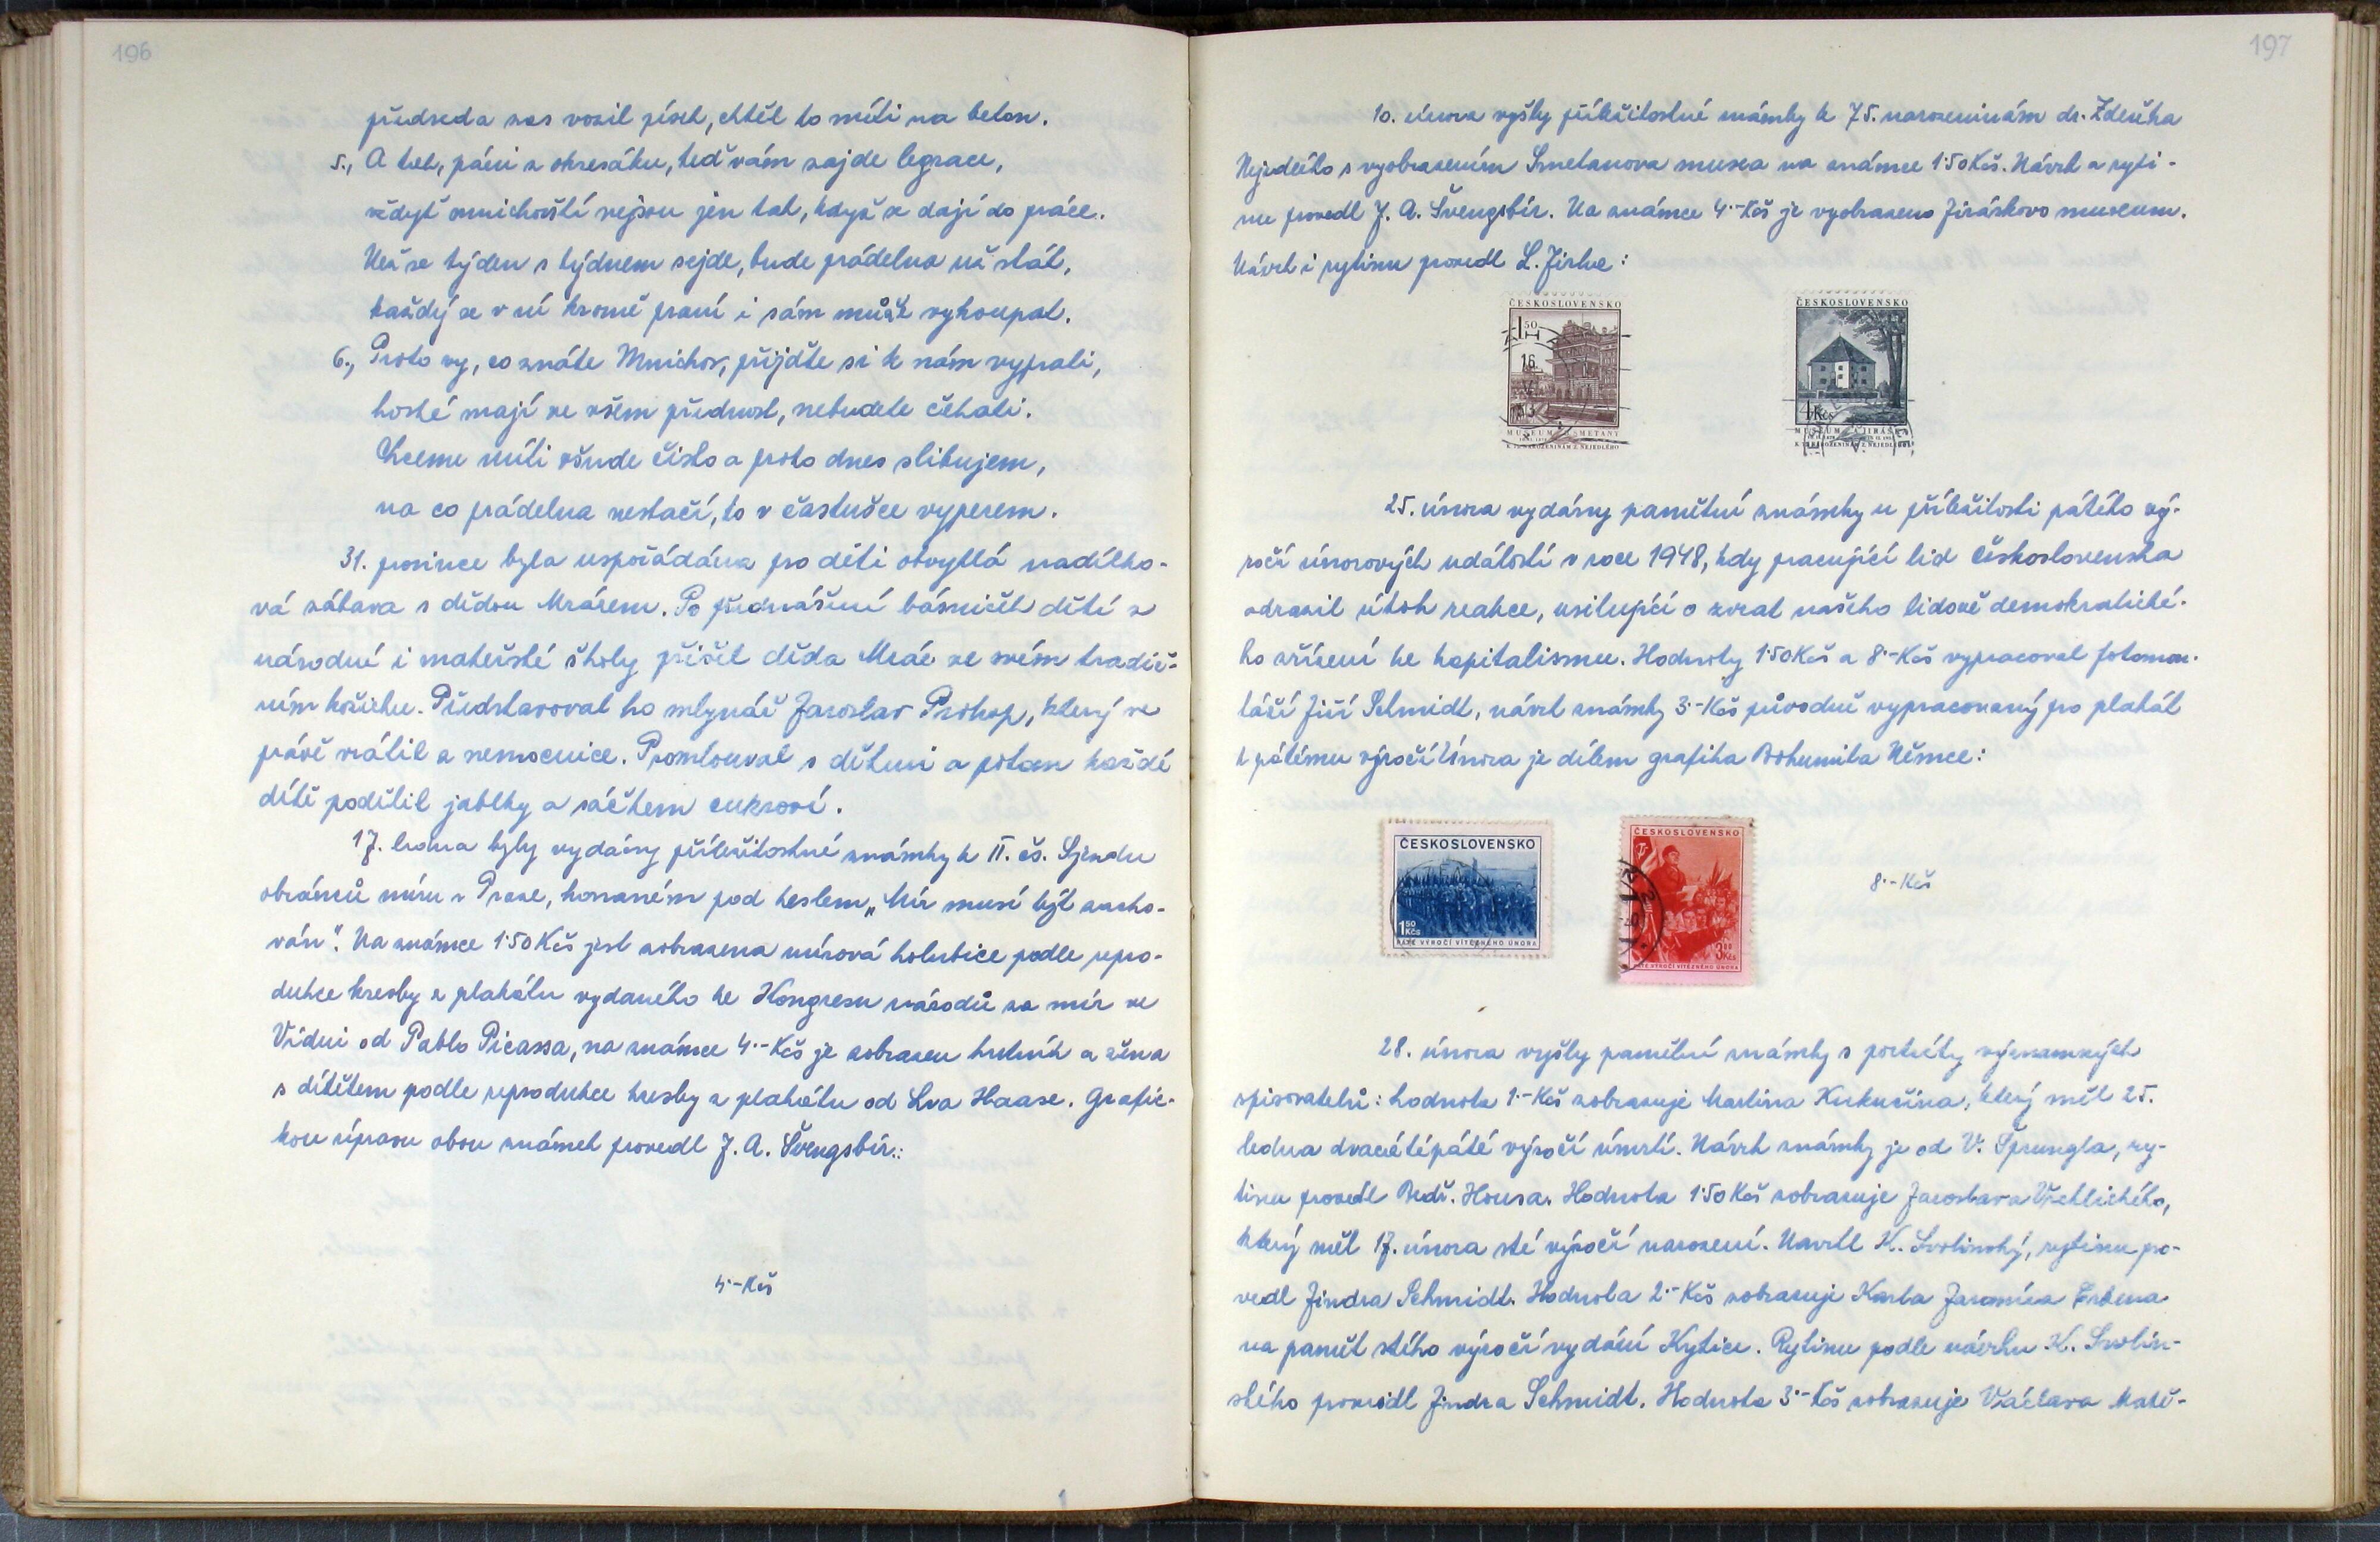 196
předseda zas vozil písek, chtěl to míti na beton.
5., A tak, páni z okresáku, teď vám zajde legrace,
vždyť mnichovští nejsou jen tak, když se dají do práce.
Než se týden s týdnem sejde, bude prádelna už stát,
každý se v ní kromě praní i sám může vykoupat.
6., Proto vy, co znáte Mnichov, přijďte si k nám vyprati,
hosté mají ve všem přednost, nebudete čekati.
Chceme míti všude čisto a proto dnes slibujem,
na co prádelna nestačí, to v častušce vyperem.
31. prosince byla uspořádána pro děti obvyklá nadílko-
vá zábava s dědou Mrázem. Po přednášení básniček dětí z
národní i mateřské školy přišel děda Mráz ve svém tradič-
ním kožichu. Představoval ho mlynář Jaroslav Prokop, který se
právě vrátil z nemocnice. Promlouval s dětmi a potom každé
dítě podělil jablky a sáčkem cukroví.
17. ledna byly vydány příležitostné známky k II. čs. Sjezdu
obránců míru v Praze, konaném pod heslem „Mír musí být zacho-
ván". Na známce 1·50 Kčs jest zobrazena mírová holubice podle repro-
dukce kresby z plakátu vydaného ke Kongresu národů za mír ve
Vídni od Pablo Picassa, na známce 4·- Kčs je zobrazen hutník a žena
s dítětem podle reprodukce kresby z plakátu od Lva Haase. Grafic-
kou úpravu obou známek provedl J. A. Švengsbír.:
4·- Kčs
197
10. února vyšly příležitostné známky k 75. narozeninám dr. Zdeňka
Nejedlého s vyobrazením Smetanova musea na známce 1·50 Kčs. Návrh a ryti-
nu provedl J. A. Švengsbír. Na známce 4·- Kčs je vyobrazeno Jiráskovo museum.
Návrh i rytinu provedl L. Jirka:
ČESKOSLOVENSKO
1 50
16
MUSEUM B. SMETANY
K 75. NAROZENINÁM Z. NEJEDLÉHO
ČESKOSLOVENSKO
4 Kčs
MUSEUM A. JIRÁSKA
K 75. NAROZENINÁM Z. NEJEDLÉHO
25. února vydány pamětní známky u příležitosti pátého vý-
ročí únorových událostí v roce 1948, kdy pracující lid Československa
odrazil útok reakce, usilující o zvrat našeho lidově demokratické-
ho zřízení ke kapitalismu. Hodnoty 1·50 Kčs a 8·- Kčs vypracoval fotomon-
táží Jiří Schmidt, návrh známky 3·- Kčs původně vypracovaný pro plakát
k pátému výročí Února je dílem grafika Bohumila Němce:
ČESKOSLOVENSKO
1 50 Kčs
PÁTÉ VÝROČÍ VÍTĚZNÉHO ÚNORA
ČESKOSLOVENSKO
3 00 Kčs
PÁTÉ VÝROČÍ VÍTĚZNÉHO ÚNORA
8·- Kčs
28. února vyšly pamětní známky s portréty významných
spisovatelů: hodnota 1·- Kčs zobrazuje Martina Kukučína, který měl 25.
ledna dvacátépáté výročí úmrtí. Návrh známky je od V. Šprungla, ry-
tinu provedl Bedř. Housa. Hodnota 1·50 Kčs zobrazuje Jaroslava Vrchlického,
který měl 17. února sté výročí narození. Navrhl K. Svolinský, rytinu pro-
vedl Jindra Schmidt. Hodnota 2·- Kčs zobrazuje Karla Jaromíra Erbena
na paměť stého výročí vydání Kytice. Rytinu podle návrhu K. Svolin-
ského provedl Jindra Schmidt. Hodnota 3·- Kčs zobrazuje Václava Matě-